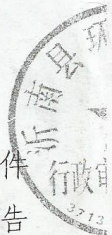 沂南县环
行政审
3713
件
告